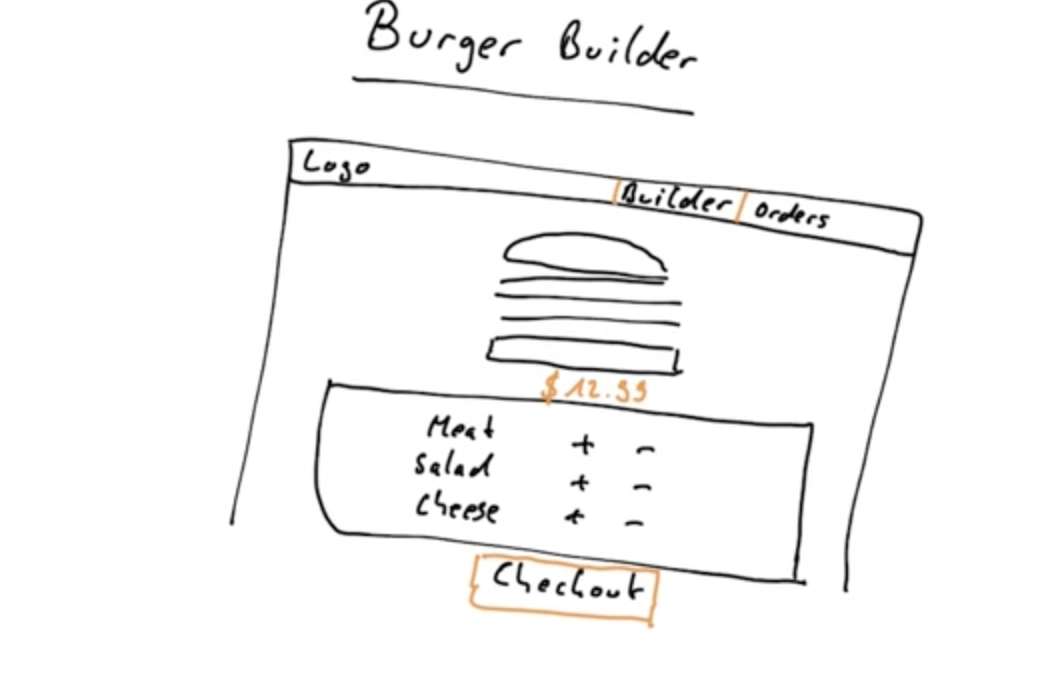 Burger Builder
Logo Builder Orders
$12.99
Meat + -
Salad + -
Cheese + -
Checkout